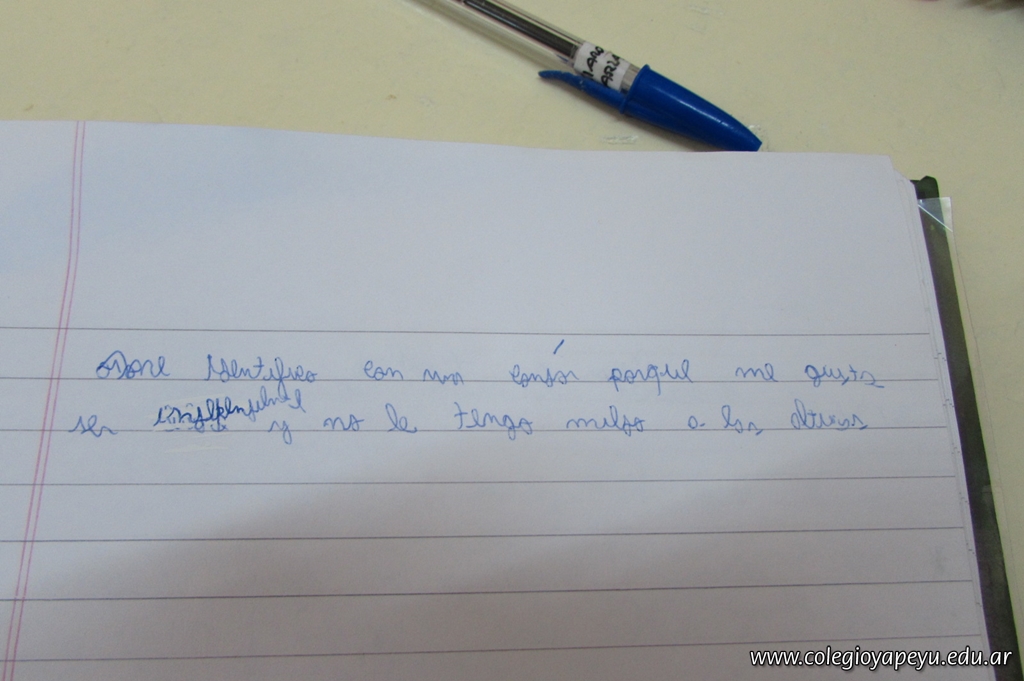 MARO
ARIA
me identifico con un condor porque me gusta
ser independiente y no le tengo miedo a las alturas
www.colegioyapeyu.edu.ar